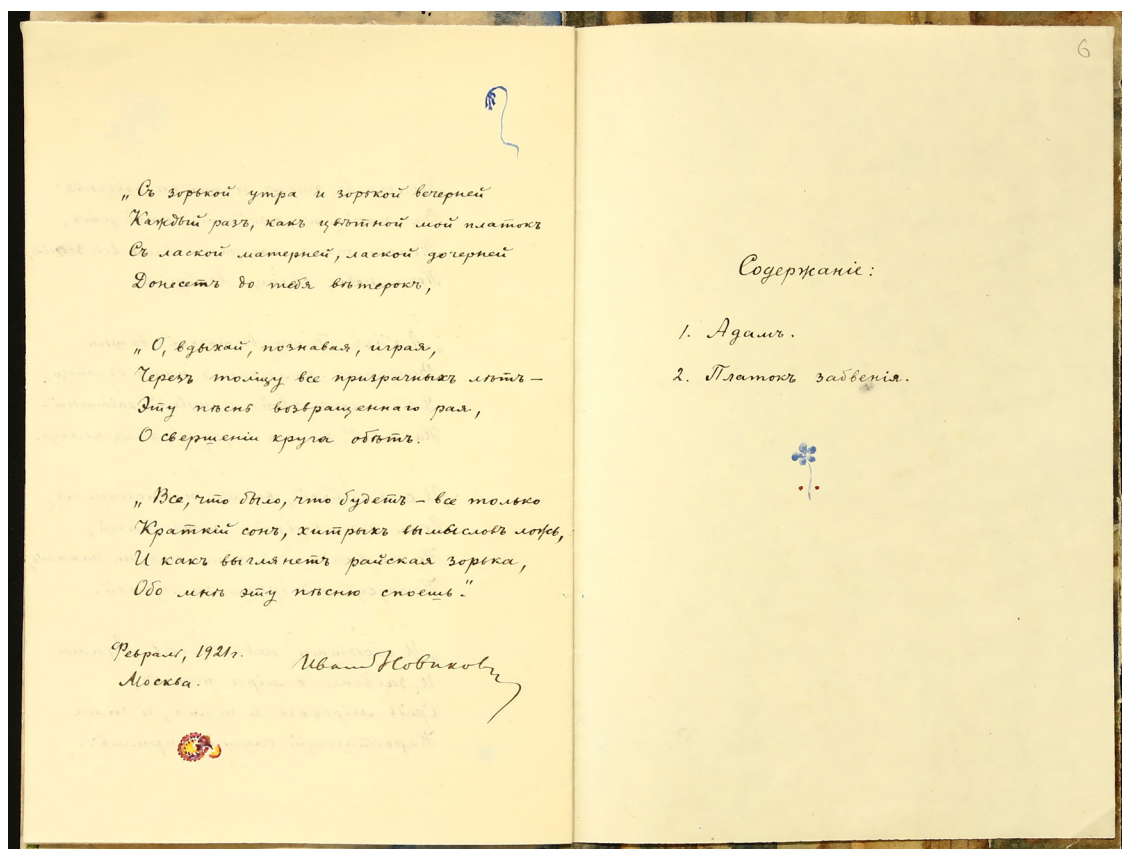 „Съ зорькой утра и зорькой вечерней
Каждый разъ, какъ цвѣтной мой платокъ
Съ лаской матерней, лаской дочерней
Донесетъ до тебя вѣтерокъ,
„О, вдыхай, познавая, играя,
Черезъ толщу все призрачныхъ лѣтъ —
Эту пѣснь возвращеннаго рая,
О свершеніи круга обѣтъ.
„Все, что было, что будетъ — все только
Краткій сонъ, хитрыхъ вымысловъ ложь,
И какъ выглянетъ райская зорька,
Обо мнѣ эту пѣсню споешь."
Февраль, 1921 г.
Москва.
Иван Новиковъ
6
Содержаніе:
1. Адамъ.
2. Платокъ забвенія.